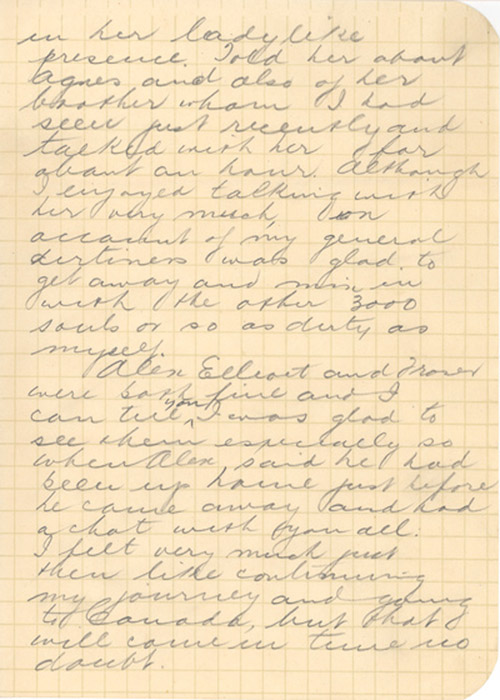 in her ladylike
presence. Told her about
Agnes and also of her
brother whom I had
seen just recently and
talked with her for
about an hour. Although
I enjoyed talking with
her very much, on
account of my general
dirtiness was glad to
get away and mix in
with the other 3000
souls or so as dirty as
myself.
Alex Elliott and Fraser
were both fine and I
can tell you I was glad to
see them especially so
when Alex said he had
been up home just before
he came away and had
a chat with you all.
I felt very much just
then like continuing
my journey and going
to Canada, but that
will come in time no
doubt.